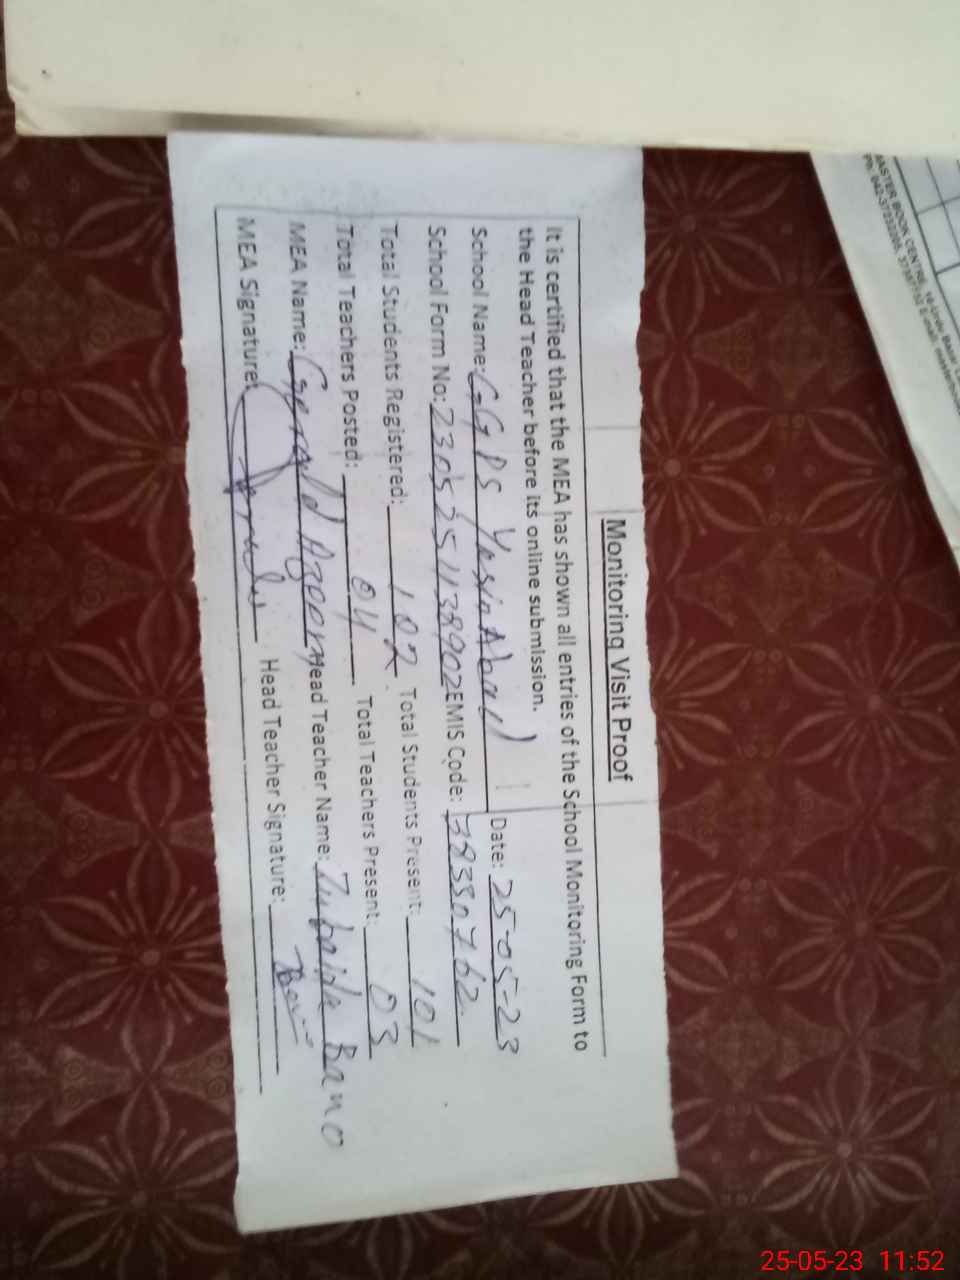 Monitoring Visit Proof
It is certified that the MEA has shown all entries of the School Monitoring Form to
the Head Teacher before its online submission.
School Name: GGPS Yasin Abad Date: 25-05-23
School Form No: 2305251138902 EMIS Code: 38330762
Total Students Registered: 102 Total Students Present: 101
Total Teachers Posted: 04 Total Teachers Present: 03
MEA Name: Gerald Azeem Head Teacher Name: Zubaida Bano
MEA Signature: Head Teacher Signature: Bano
MASTER BOOK CENTRE
25-05-23 11:52